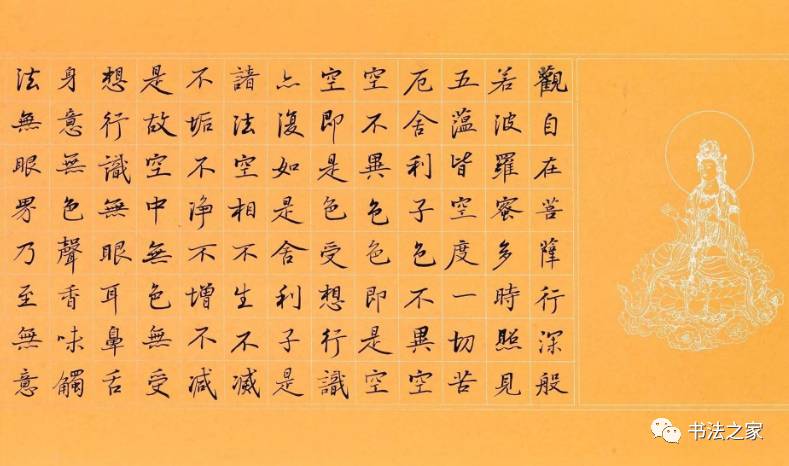 觀自在菩薩行深般
若波羅蜜多時照見
五薀皆空度一切苦
厄舍利子色不異空
空不異色色即是空
空即是色受想行識
亦復如是舍利子是
諸法空相不生不滅
不垢不净不增不减
是故空中無色無受
想行識無眼耳鼻舌
身意無色聲香味觸
法無眼界乃至無意
书法之家